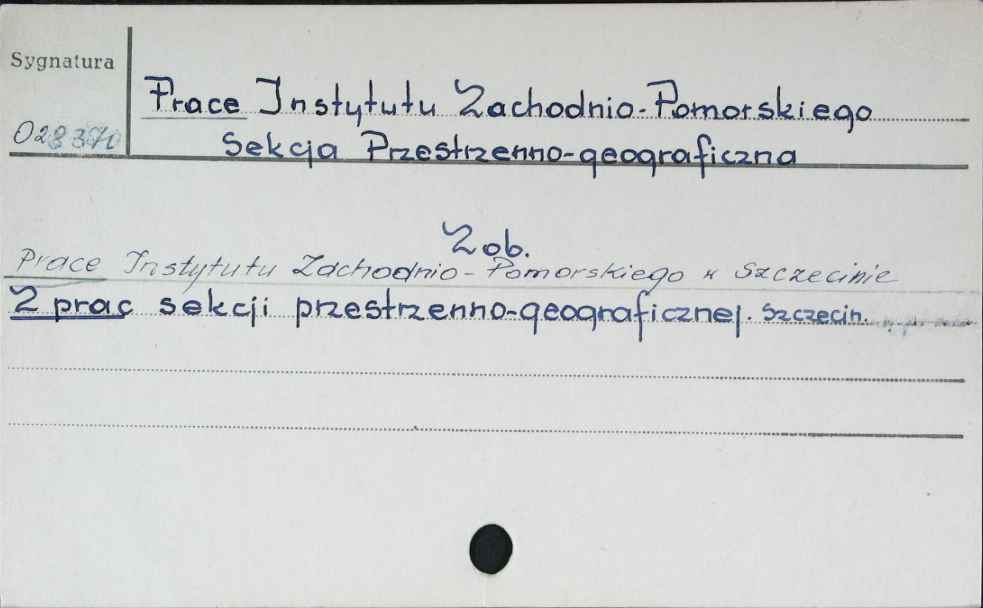 Sygnatura
Prace Instytutu Zachodnio-Pomorskiego
Sekcja Przestrzenno-geograficzna
Zob.
Prace Instytutu Zachodnio-Pomorskiego w Szczecinie
Z prac sekcji przestrzenno-geograficznej. Szczecin.